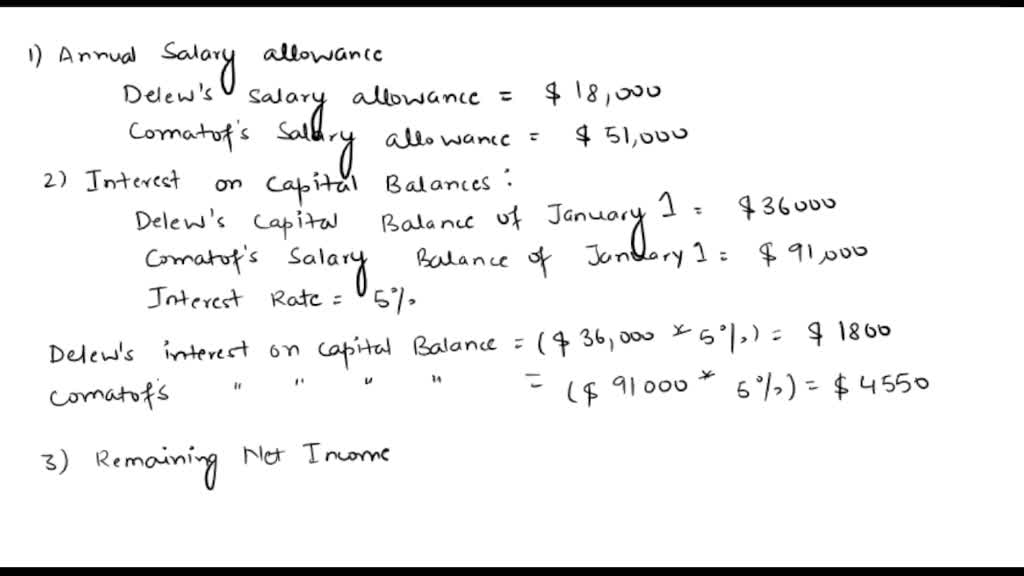 1) Annual Salary allowance
Delew's salary allowance = $ 18,000
Comatof's Salary allowance = $ 51,000
2) Interest on Capital Balances :
Delew's Capital Balance of January 1 = $36000
Comatof's Salary Balance of January 1 = $ 91,000
Interest Rate = 5%
Delew's interest on capital Balance = ($ 36,000 * 5%) = $ 1800
Comatof's " " " " = ($ 91000 * 5%) = $ 4550
3) Remaining Net Income